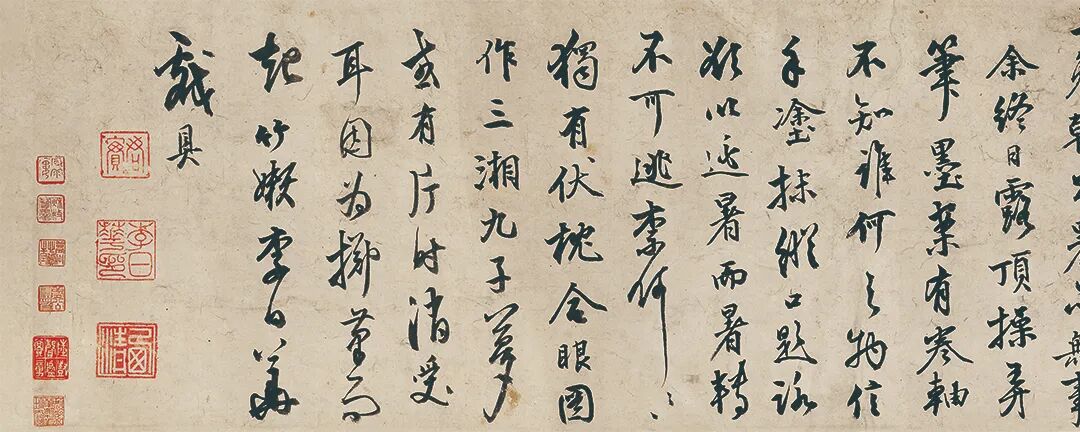 余終日露頂操弄
筆墨案有卷軸
不知誰何之物信
手塗抹縱口題詠
欲以逃暑而暑轉
不可逃奈何〻
獨有伏枕合眼圖
作三湘九子夢
或有片時消受
耳因為擲筆而
起竹嬾李日華
戲具
君實
李日華印